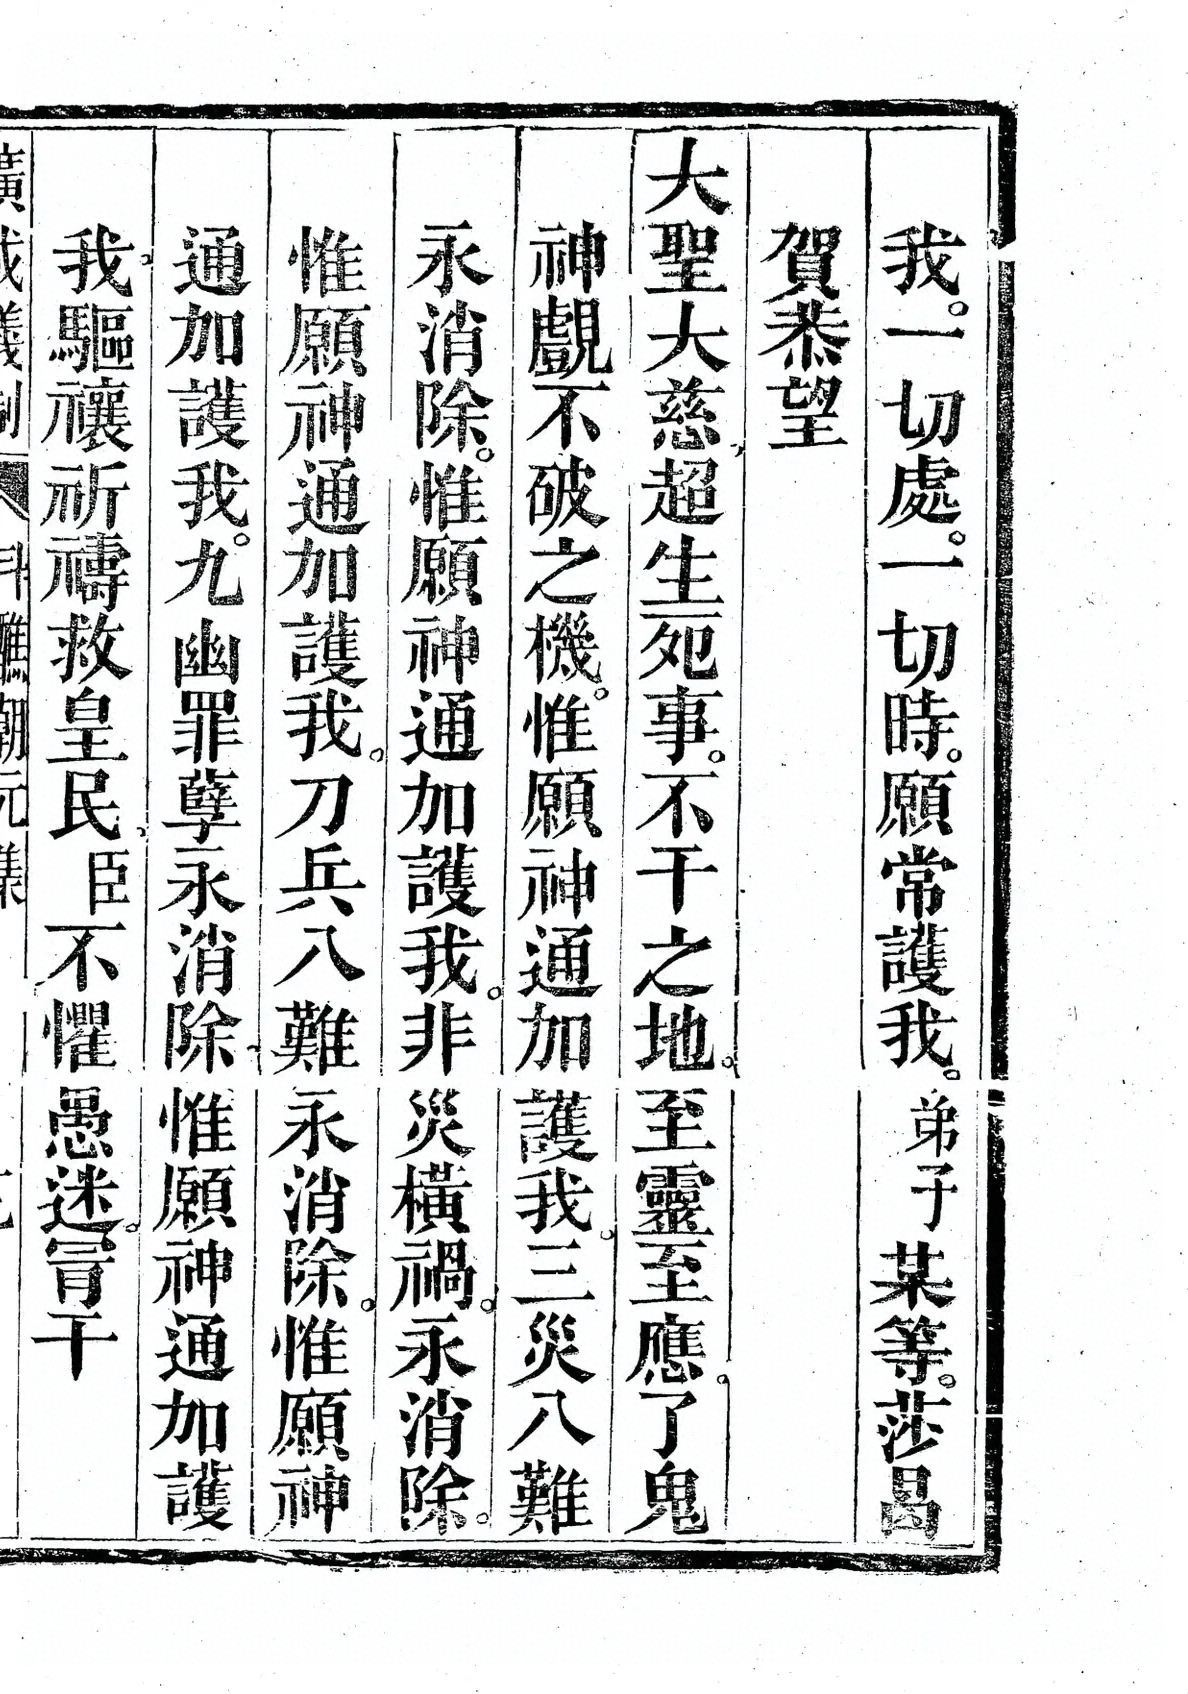 我。一切處。一切時。願常護我。弟子某等。莎曷
賀恭望
大聖大慈超生死事。不干之地。至靈至應。了鬼
神覷不破之機。惟願神通加護我。三災八難
永消除。惟願神通加護我。非災橫禍。永消除。
惟願神通加護我。刀兵八難永消除。惟願神
通加護我。九幽罪孽永消除惟願神通加護
我驅禳祈禱救皇民臣不懼愚迷。冐干
廣成儀制 斗醮朝元集